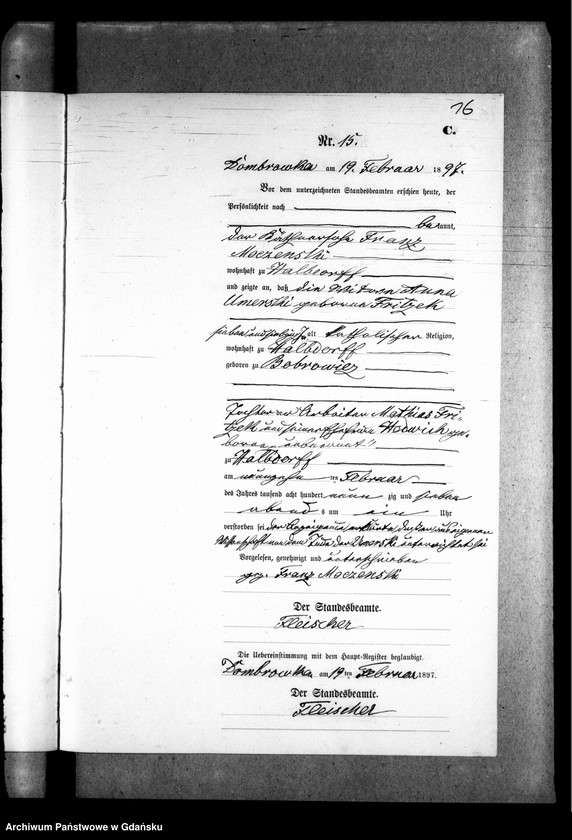 76
C.
Nr. 15.
Dombrowka am 19. Februar 1897.
Vor dem unterzeichneten Standesbeamten erschien heute, der
Persönlichkeit nach
bekannt,
der Käthnersohn Franz
Moczenski
wohnhaft zu Halbdorff
und zeigte an, daß die Witwe Anna
Umerski geborene Fritzek
siebenundsiebzig J. alt katholischer Religion,
wohnhaft zu Halbdorff
geboren zu Bobrowiez
Tochter der Arbeiter Mathias Fri-
tzek und seiner Ehefrau ge-
borene unbekannt"
zu Halbdorff
am neunzehn ten Februar
des Jahres tausend acht hundert neun zig und sieben
abends um ein Uhr
verstorben sei der Anzeigende erklärte, daß er aus eigener
Wissenschaft von dem Tode der Umerski unterrichtet sei
Vorgelesen, genehmigt und unterschrieben
gez. Franz Moczenski
Der Standesbeamte.
Fleischer
Die Uebereinstimmung mit dem Haupt-Register beglaubigt.
Dombrowka am 19 ten Februar 1897.
Der Standesbeamte.
Fleischer
Archiwum Państwowe w Gdańsku